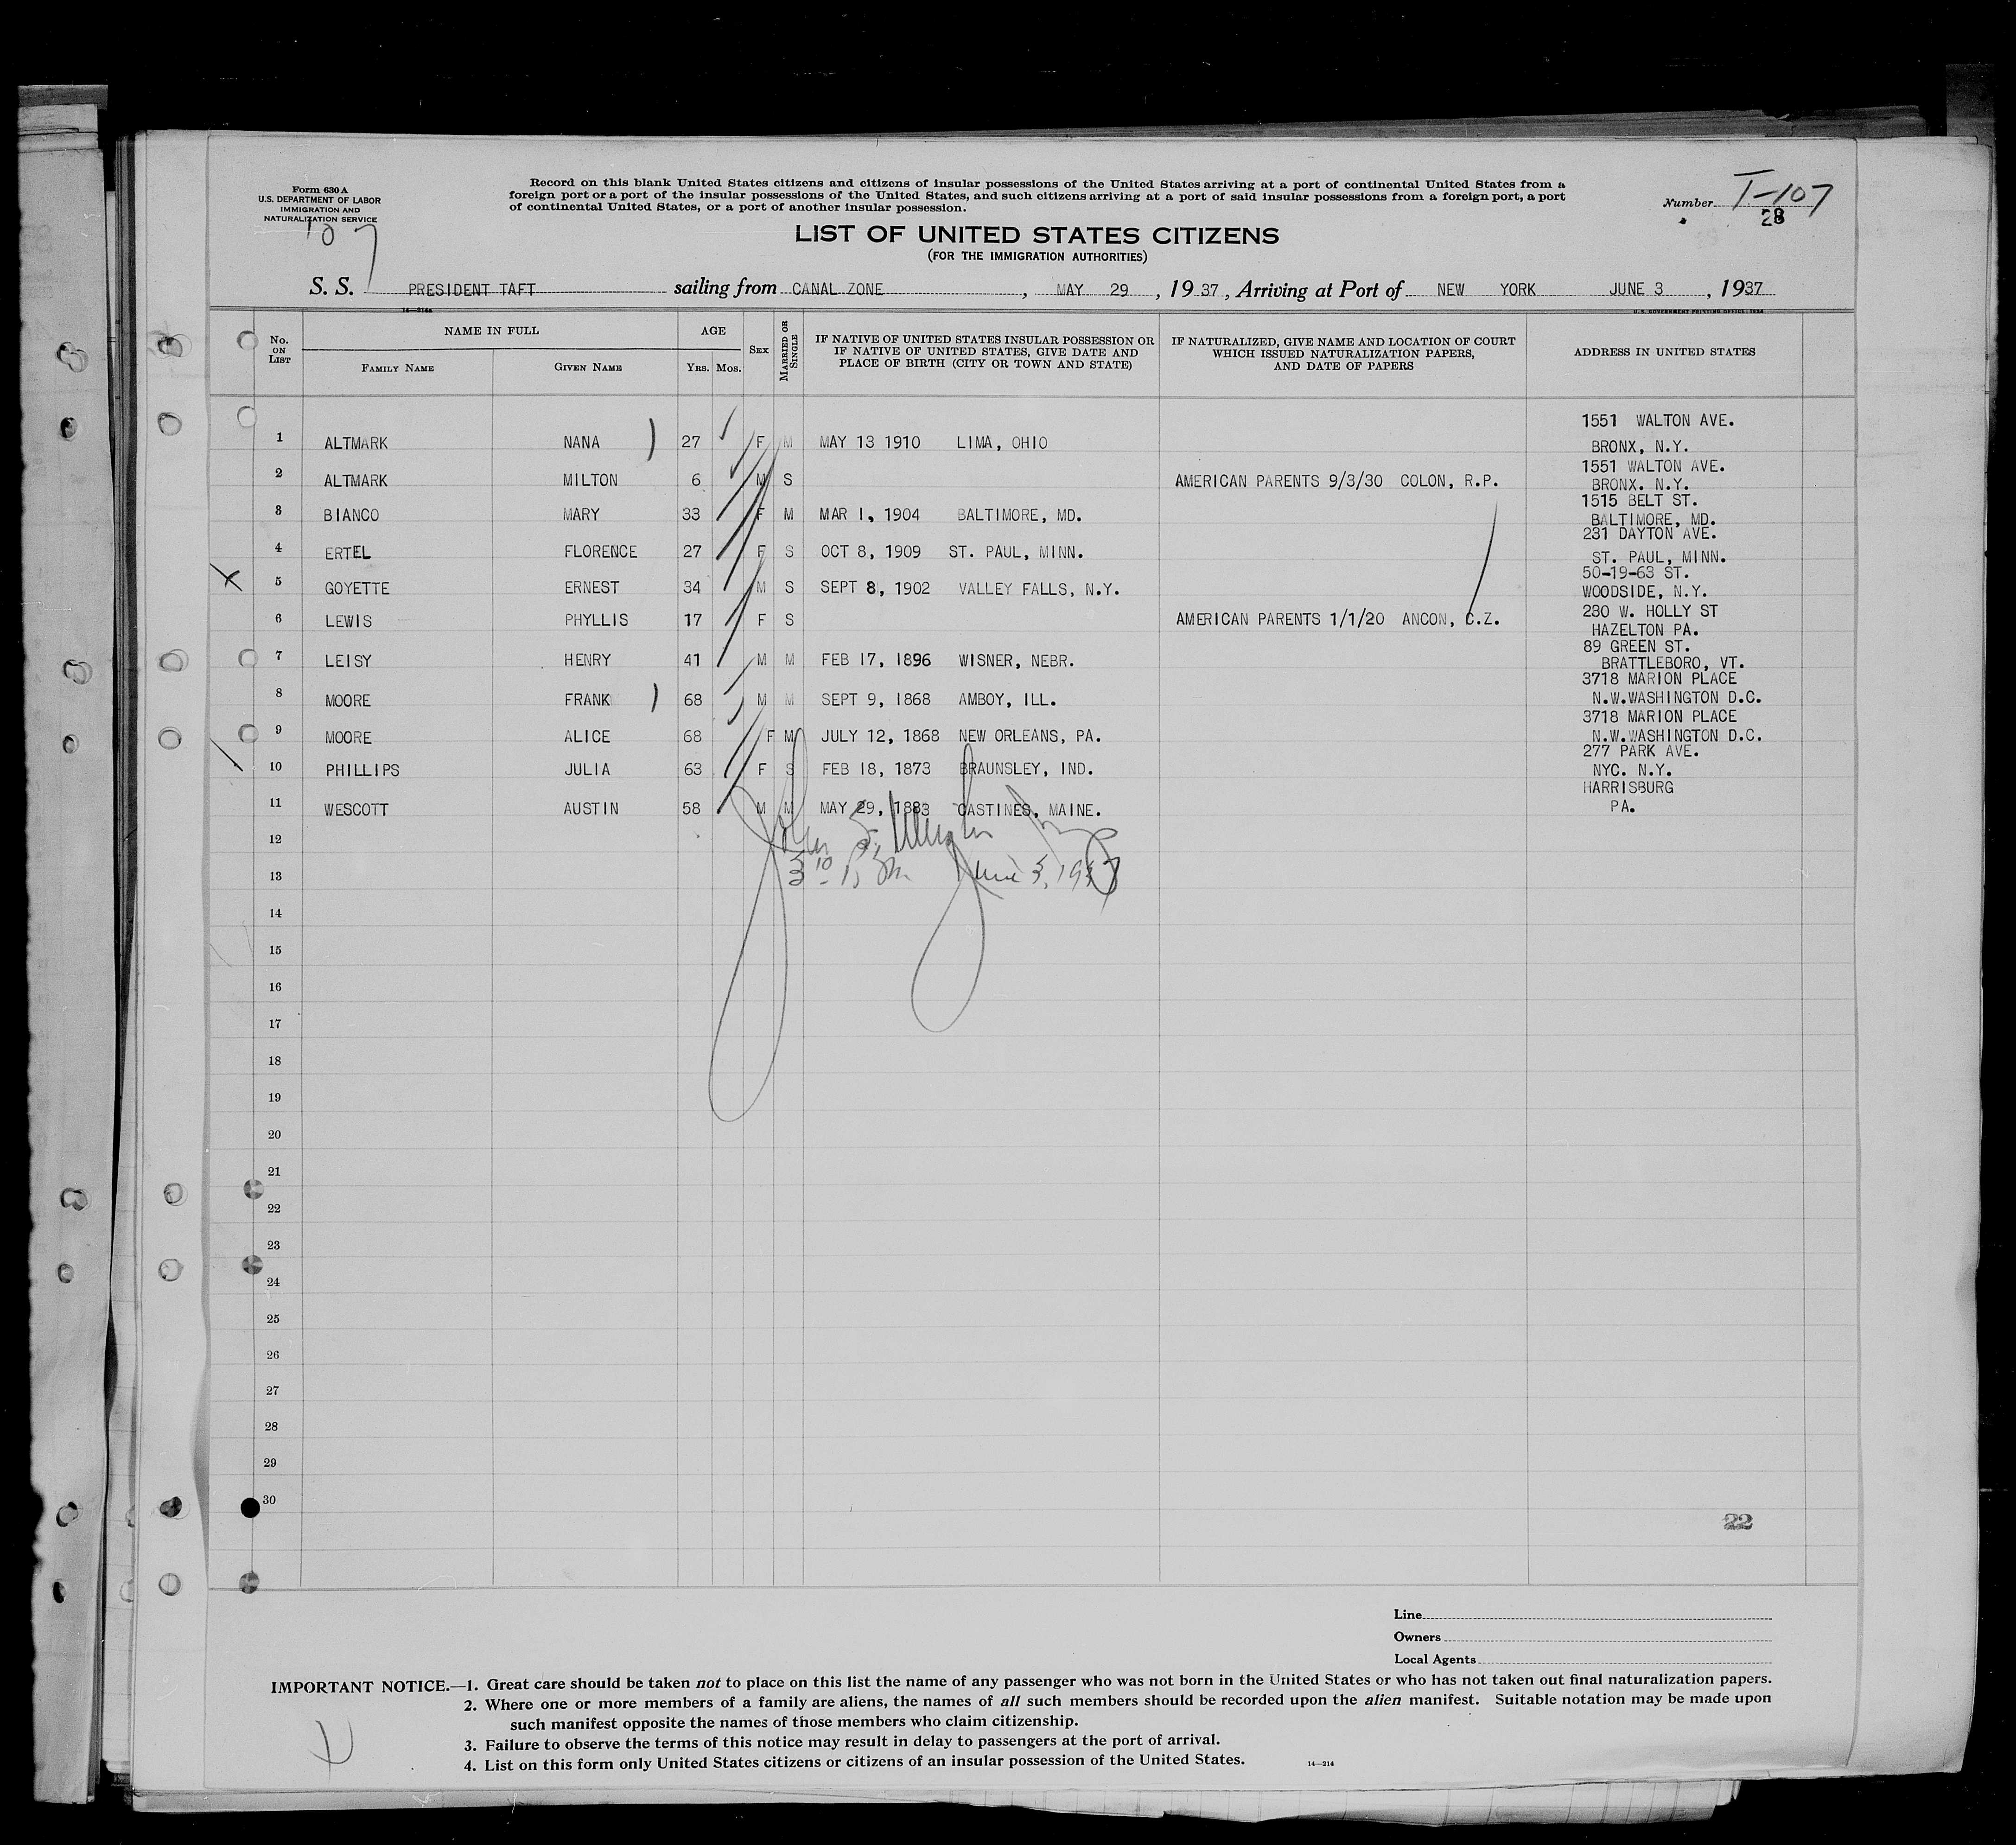 Form 630 A
U.S. DEPARTMENT OF LABOR
IMMIGRATION AND
NATURALIZATION SERVICE
107
Record on this blank United States citizens and citizens of insular possessions of the United States arriving at a port of continental United States from a
foreign port or a port of the insular possessions of the United States, and such citizens arriving at a port of said insular possessions from a foreign port, a port
of continental United States, or a port of another insular possession.
Number T-107
28
LIST OF UNITED STATES CITIZENS
(FOR THE IMMIGRATION AUTHORITIES)
S. S. PRESIDENT TAFT sailing from CANAL ZONE, MAY 29, 1937, Arriving at Port of NEW YORK JUNE 3, 1937
14—214a
U. S. GOVERNMENT PRINTING OFFICE: 1936
No. ON LIST
NAME IN FULL
FAMILY NAME GIVEN NAME
AGE
YRS. MOS.
SEX
MARRIED OR SINGLE
IF NATIVE OF UNITED STATES INSULAR POSSESSION OR
IF NATIVE OF UNITED STATES, GIVE DATE AND
PLACE OF BIRTH (CITY OR TOWN AND STATE)
IF NATURALIZED, GIVE NAME AND LOCATION OF COURT
WHICH ISSUED NATURALIZATION PAPERS,
AND DATE OF PAPERS
ADDRESS IN UNITED STATES
1 ALTMARK NANA ) 27 F M MAY 13 1910 LIMA, OHIO 1551 WALTON AVE.
BRONX, N.Y.
2 ALTMARK MILTON 6 M S AMERICAN PARENTS 9/3/30 COLON, R.P. 1551 WALTON AVE.
BRONX. N.Y.
3 BIANCO MARY 33 F M MAR 1, 1904 BALTIMORE, MD. 1515 BELT ST.
BALTIMORE, MD.
4 ERTEL FLORENCE 27 F S OCT 8, 1909 ST. PAUL, MINN. 231 DAYTON AVE.
ST. PAUL, MINN.
5 GOYETTE ERNEST 34 M S SEPT 8, 1902 VALLEY FALLS, N.Y. 50-19-63 ST.
WOODSIDE, N.Y.
6 LEWIS PHYLLIS 17 F S AMERICAN PARENTS 1/1/20 ANCON, C.Z. 280 W. HOLLY ST
HAZELTON PA.
7 LEISY HENRY 41 M M FEB 17, 1896 WISNER, NEBR. 89 GREEN ST.
BRATTLEBORO, VT.
8 MOORE FRANK ) 68 M M SEPT 9, 1868 AMBOY, ILL. 3718 MARION PLACE
N.W.WASHINGTON D.C.
9 MOORE ALICE 68 F M JULY 12, 1868 NEW ORLEANS, PA. 3718 MARION PLACE
N.W.WASHINGTON D.C.
10 PHILLIPS JULIA 63 F S FEB 18, 1873 BRAUNSLEY, IND. 277 PARK AVE.
NYC. N.Y.
11 WESCOTT AUSTIN 58 M M MAY 29, 1883 CASTINES, MAINE. HARRISBURG
PA.
12
13 June 3, 1937
14
15
16
17
18
19
20
21
22
23
24
25
26
27
28
29
30
22
Line
Owners
Local Agents
IMPORTANT NOTICE.—1. Great care should be taken not to place on this list the name of any passenger who was not born in the United States or who has not taken out final naturalization papers.
2. Where one or more members of a family are aliens, the names of all such members should be recorded upon the alien manifest. Suitable notation may be made upon
such manifest opposite the names of those members who claim citizenship.
3. Failure to observe the terms of this notice may result in delay to passengers at the port of arrival.
4. List on this form only United States citizens or citizens of an insular possession of the United States.
14—214